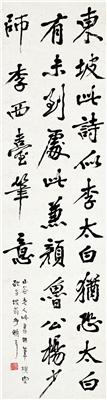 東坡此詩似李太白猶恐太白
有未到處此兼顏魯公楊少
師李西臺筆意
山谷老人